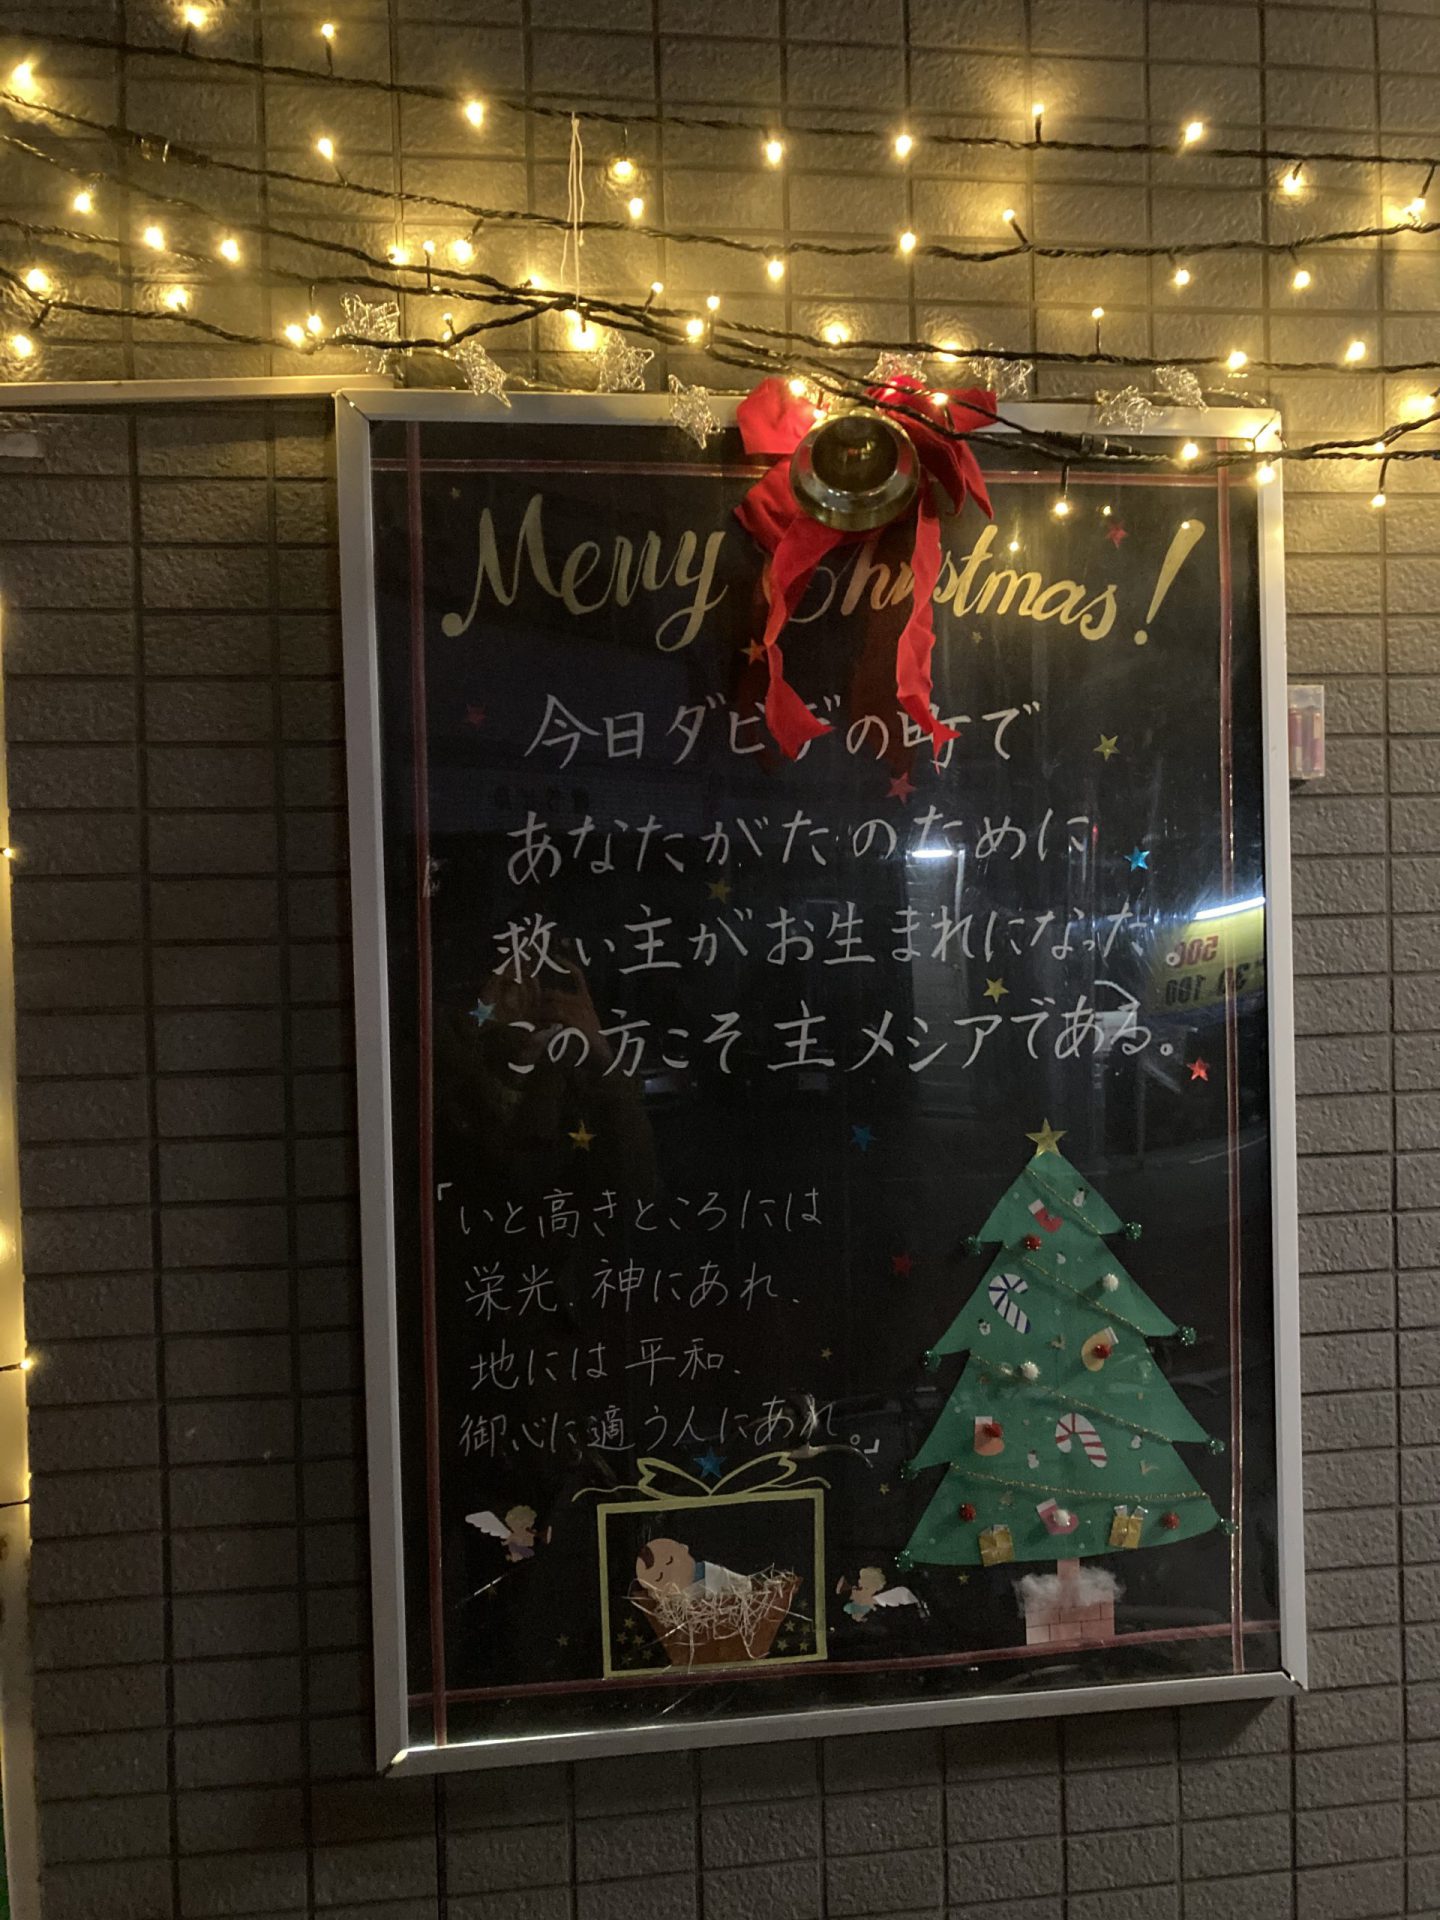 Merry Christmas!
今日ダビデの町で
あなたがたのために
救い主がお生まれになった。
この方こそ主メシアである。
「いと高きところには
栄光、神にあれ、
地には平和、
御心に適う人にあれ。」